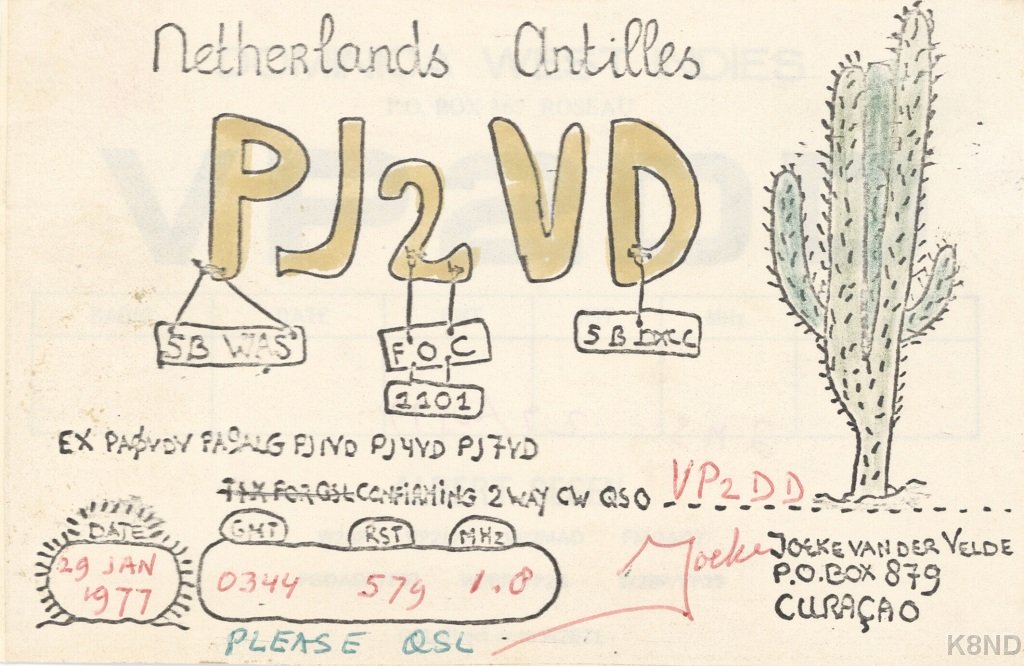 Netherlands Antilles
PJ2VD
5B WAS
FOC
1101
5B DXCC
EX PAØVDV PA9ALG PJ1VD PJ4VD PJ7VD
TNX FOR QSL CONFIRMING 2 WAY CW QSO VP2DD
DATE GMT RST MHz
29 JAN 1977
0344 579 1.8
Joeke
JOEKE VAN DER VELDE
P.O. BOX 879
CURAÇAO
PLEASE QSL
K8ND